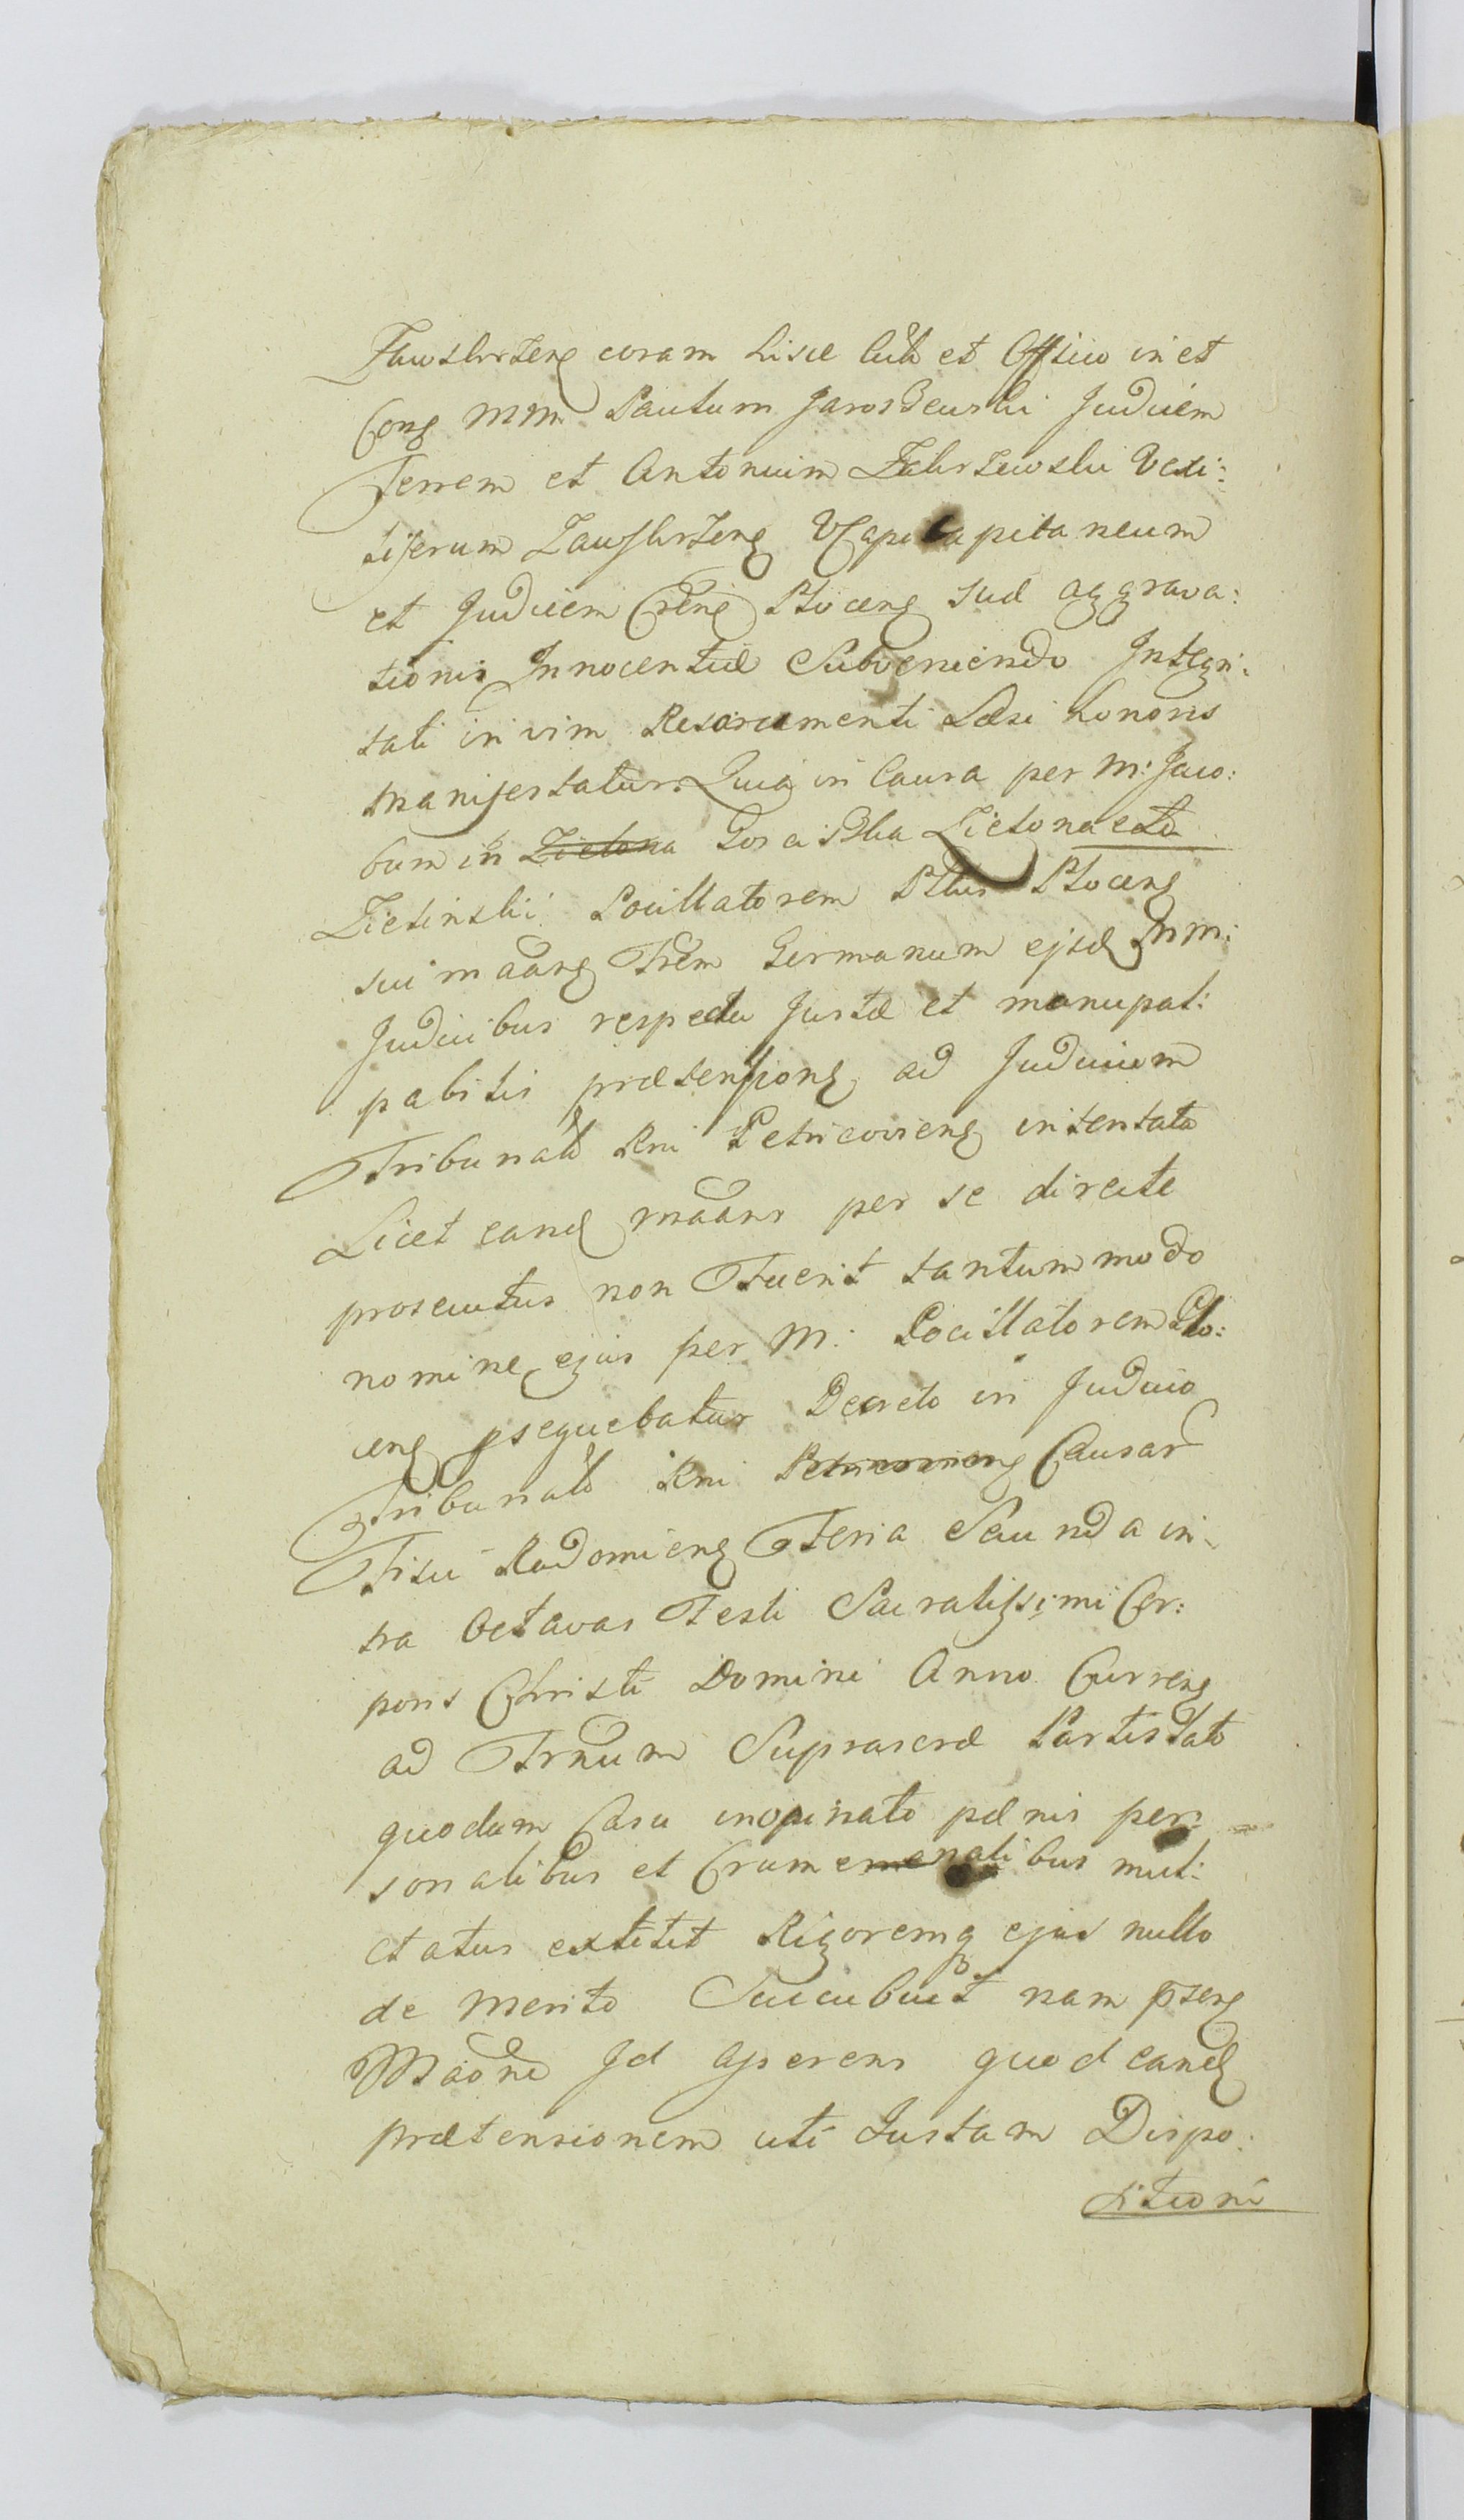 Zawskrzeng coram hisce Actis et Officio in et
Cong MM: Paulum Jaroszewski Judicem
Terrem et Antonium Zakrzewski Vexi:
liferum Zawskrzeng VCapitaneum
et Judicem Ploceng suæ aggrava:
tionis Innocentiæ Subveniendo Integri:
tati in vim Resarcimenti Læsi honoris
manifestatur. Quia in Causa per M: Jaco:
bum in Zielona Zielona
Zielinski Pocillatorem Ploceng
sui maang Frem Germanum ejsd MM:
Judicibus respectu Justæ et manupal:
pabilis prætensiong ad Judicium
Tribunals Rni Petricovieng intentata
Licet eand maans per se directe
prosecutus non Fuerit tantummodo
nomine ejus per M: Pocillatorem Plo:
ceng psequebatur Decreto in Judicio
Tribunals Rni Petricovieng Causar
Fisci Radomieng Feria Secunda in:
fra Octavas Festi Sacratissimi Cor:
poris Christi Domini Anno Curreng
ad Trnum Suprascræ Partis lato
quodam Casu inopinato pænis per:
sonalibus et Crumenalibus mul:
ctatus extitit Rigoremq ejus nullo
de merito Succubuit nam pseng
Maone Id Asserens quod eand
prætensionem uti Justam Dispo:
sitioni